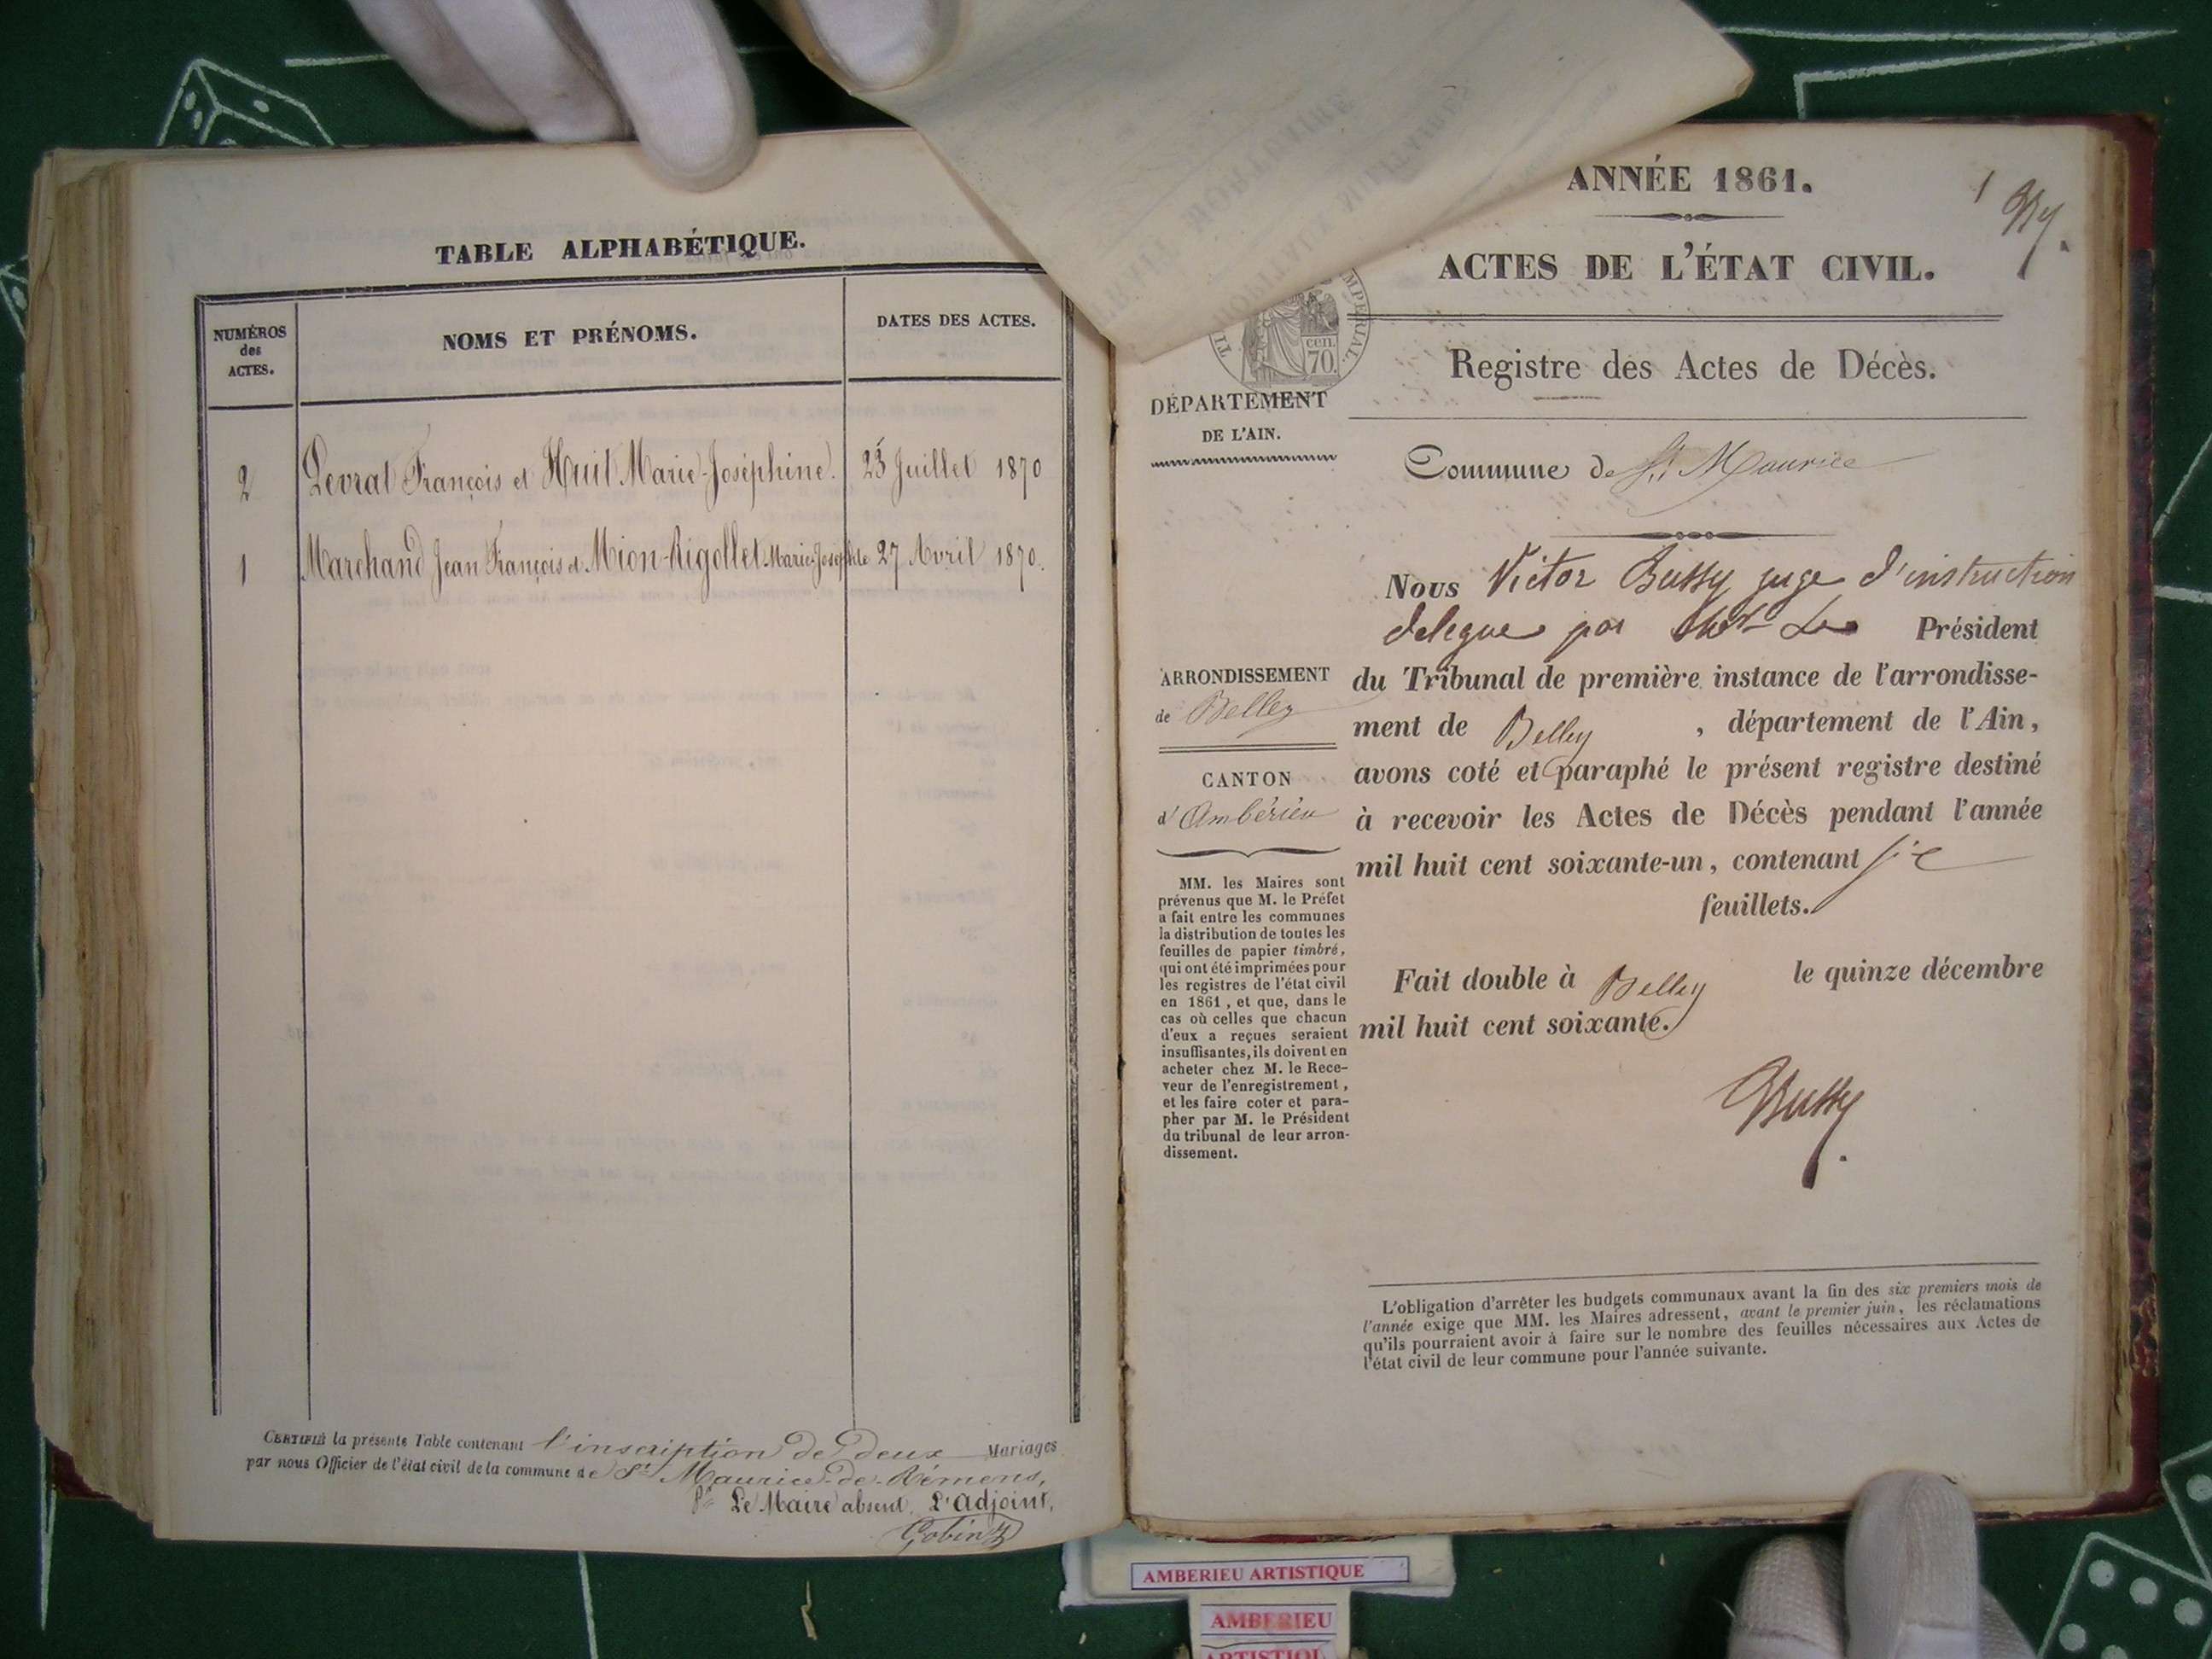 TABLE ALPHABÉTIQUE.
NUMÉROS
des
ACTES.
NOMS ET PRÉNOMS.
DATES DES ACTES.
2 Levrat François et Huit Marie-Joséphine. 25 Juillet 1870
1 Marchand Jean François et Mion-Rigollet Marie Josephte 27 Avril 1870.
CERTIFIÉ la présente Table contenant l'inscription de deux Mariages
par nous Officier de l'état civil de la commune de St Maurice-de-Rémens,
Pr Le Maire absent, L'Adjoint,
Gobin
ANNÉE 1861.
1
ACTES DE L'ÉTAT CIVIL.
IMPÉRIAL.
cen.
70.
Registre des Actes de Décès.
DÉPARTEMENT
DE L'AIN.
Commune de St Maurice
Nous Victor Bussy juge d'instruction
delegue par Le Président
ARRONDISSEMENT
de Belley
du Tribunal de première instance de l'arrondisse-
ment de Belley , département de l'Ain,
CANTON
d'Ambérieu
avons coté et paraphé le présent registre destiné
à recevoir les Actes de Décès pendant l'année
mil huit cent soixante-un, contenant six
feuillets.
MM. les Maires sont
prévenus que M. le Préfet
a fait entre les communes
la distribution de toutes les
feuilles de papier timbré,
qui ont été imprimées pour
les registres de l'état civil
en 1861, et que, dans le
cas où celles que chacun
d'eux a reçues seraient
insuffisantes, ils doivent en
acheter chez M. le Rece-
veur de l'enregistrement,
et les faire coter et para-
pher par M. le Président
du tribunal de leur arron-
dissement.
Fait double à Belley le quinze décembre
mil huit cent soixante.
Bussy
L'obligation d'arrêter les budgets communaux avant la fin des six premiers mois de
l'année exige que MM. les Maires adressent, avant le premier juin, les réclamations
qu'ils pourraient avoir à faire sur le nombre des feuilles nécessaires aux Actes de
l'état civil de leur commune pour l'année suivante.
AMBERIEU ARTISTIQUE
AMBERIEU
ARTISTIQU